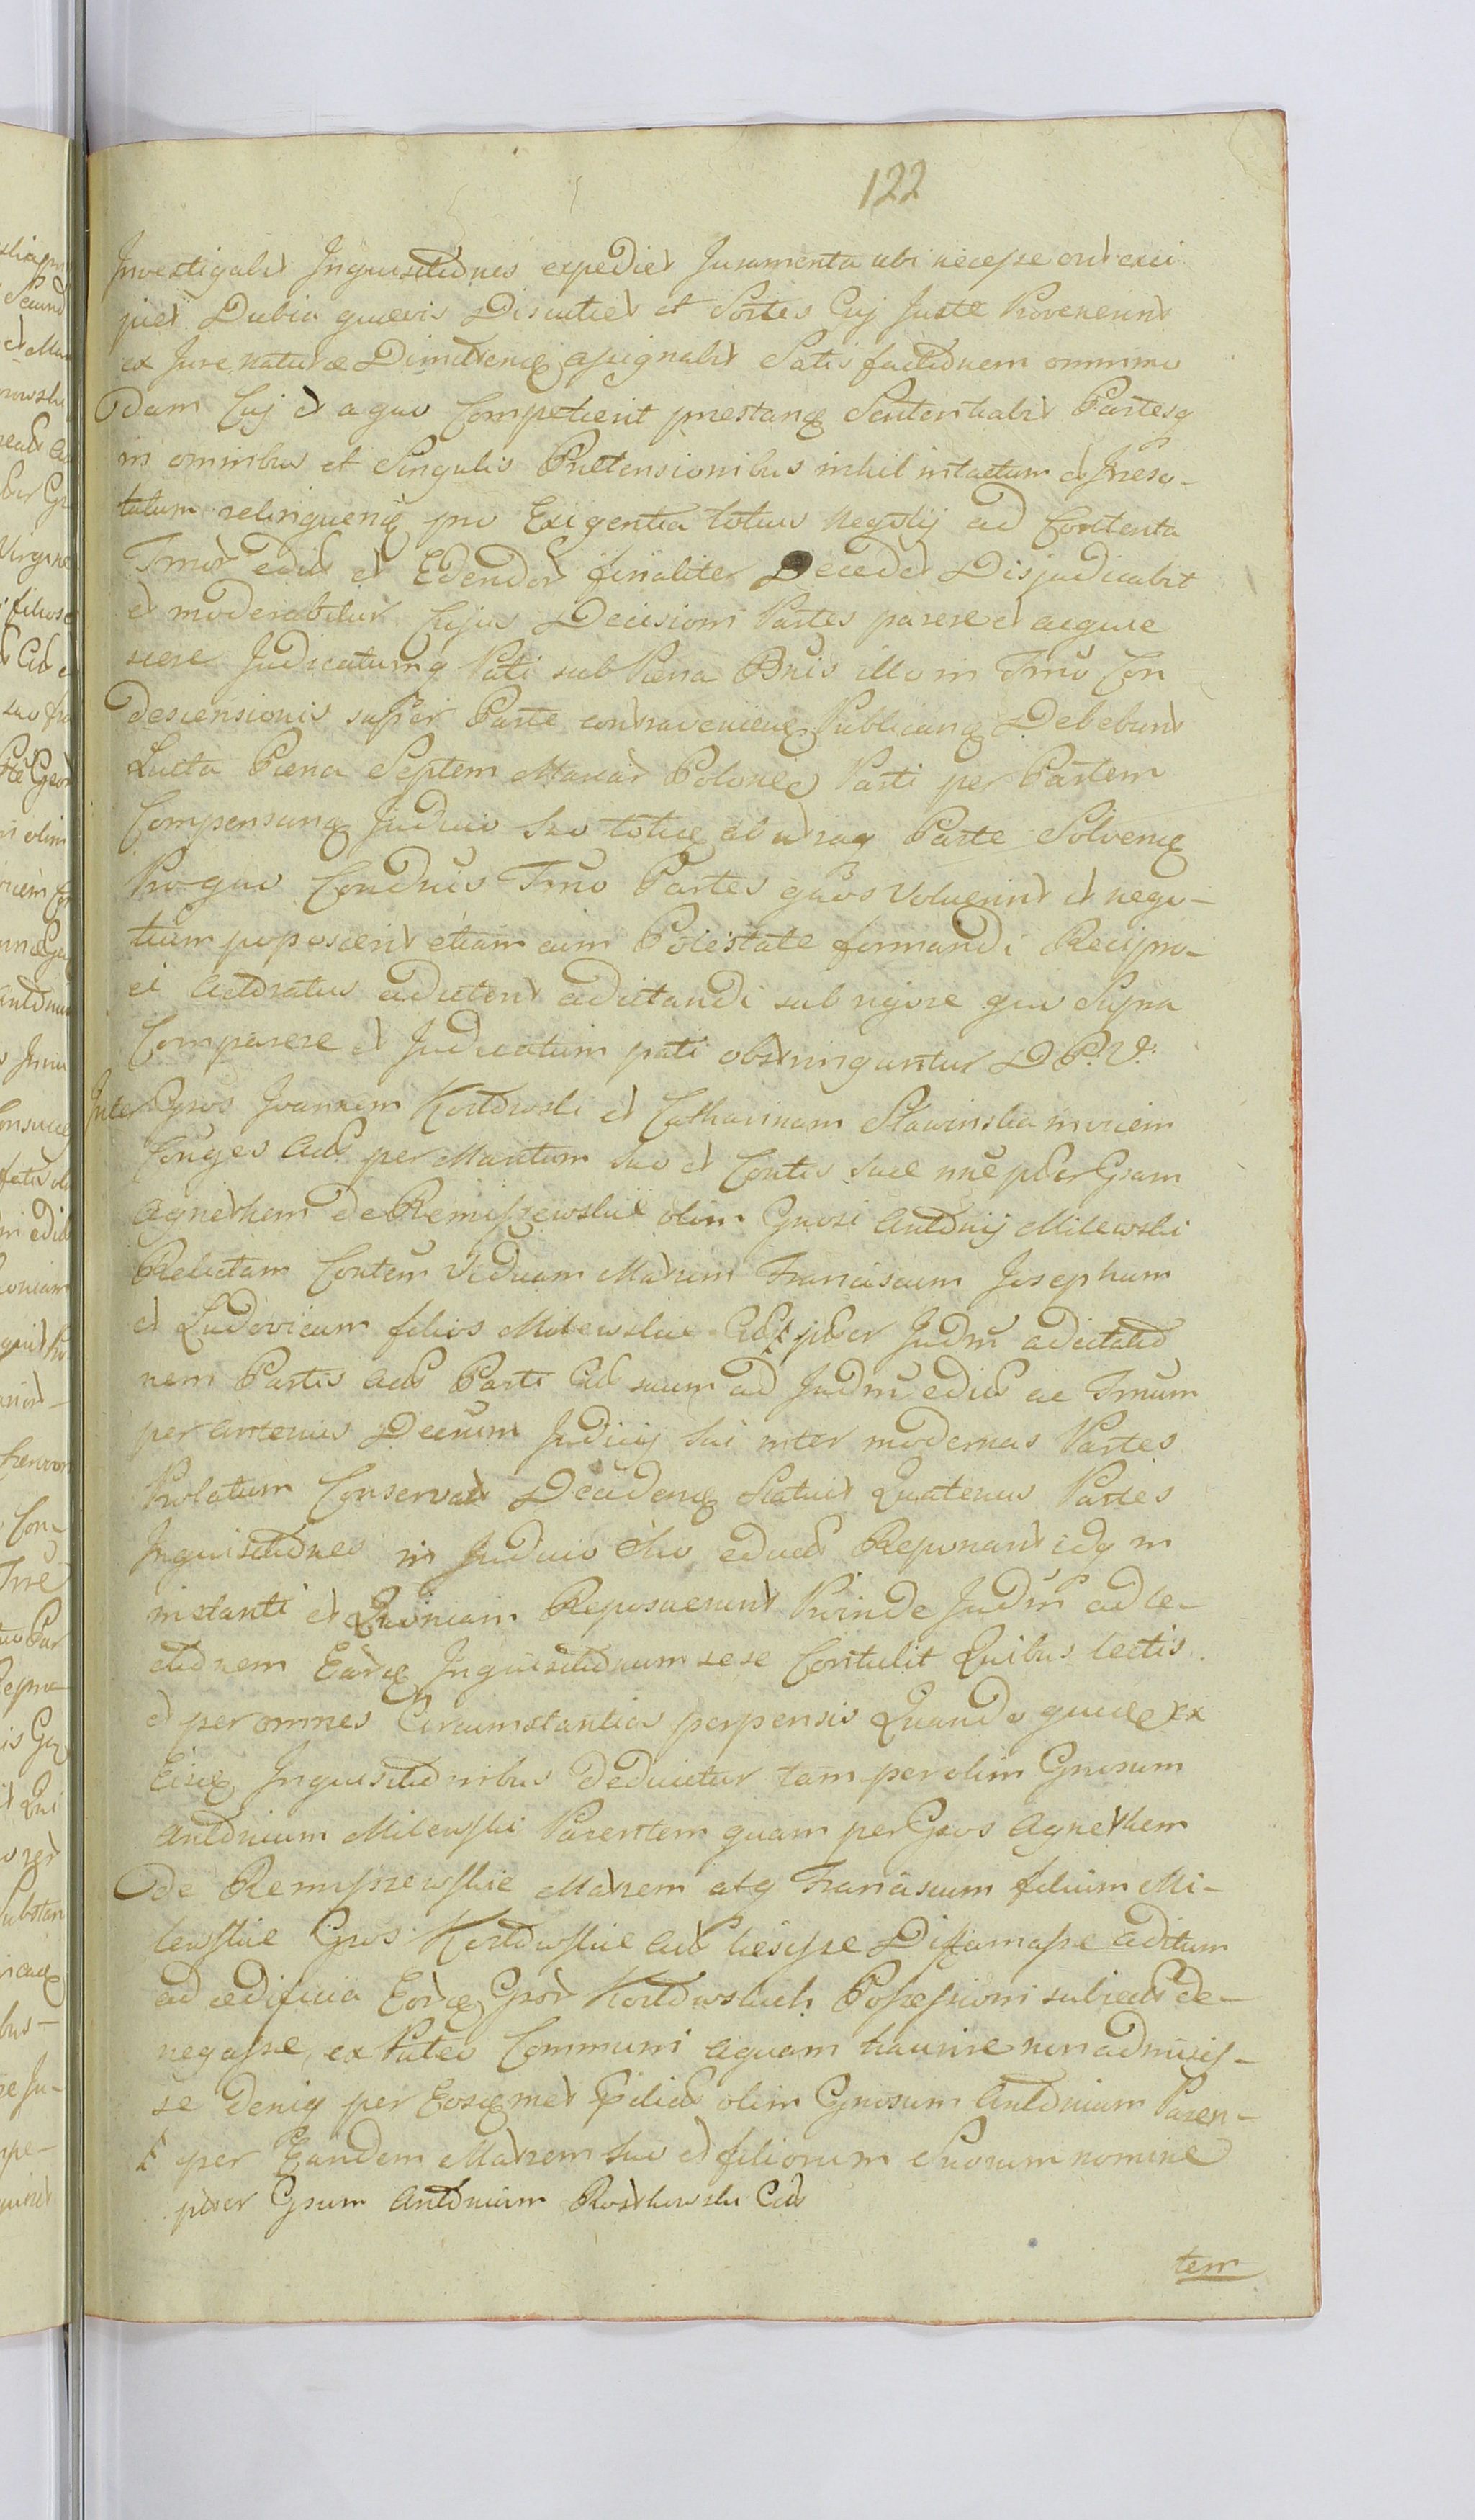 122
Investigabit Inquisitiones expediet Juramenta ubi necesse erit exci
piet Dubia quaevis Discutiet et Sortes Cuj Juste Provenerint
ex Jure naturae Dimittenꝗ assignabit Satisfactionem omnimo
dam Cuj et a quo Competierit praestanꝗ Sententiabit Partesq
in omnibus et Singulis Praetensionibus nihil intactum et Irreso-
lutum relinquenꝗ pro Exigentia totius Negotij ad Contenta
Tmor edit et Edendor finaliter Decidet Disjudicabit
et moderabitur Cujus Decisioni Partes parere et acquie
scere Judicatumq Pati sub Paena Bnis illo in Tmo Con
descensionis super Parte contravenienꝗ Publicanꝗ Debebunt
Lucta Paena Septem Marcar Polonic Parti per Partem
Compensanꝗ Judicio Suo totieꝗ ab utraq Parte Solvenꝗ
Pro quo Condnis Tmo Partes quos Voluerint et nego-
tium poposcerit etiam cum Potestate formandi Recipro-
ci Actoratus adcitent adcitandi sub rigore quo Supra
Comparere et Judicatum pati obstringuntur D P. V.
Inter Gsos Joannem Kortowski et Catharinam Sławinska invicem
Conges Act per Maritum Suo et Contis suae nne pscr Gsam
Agnethem de Remiszewskie olim Gnosi Antonij Milewski
Relictam Contem Viduam Matrem Franciscum Josephum
et Ludovicum filios Milewskie Cit pscr Judm adcitatio
nem Partis Act Parti Cit suum ad Judm edit ac Tmum
per anterius Decrum Judicij Sui inter modernas Partes
Prolatum Conservat Decidenꝗ Statuit Quatenus Partes
Inquisitiones in Judicio Suo educt Reponant idq in
instanti et Quoniam Reposuerunt Proinde Judm ad le-
ctionem Earꝗ Inquisitionum sese Contulit Quibus lectis
et per omnes Circumstantias perpensis Quando quidem ex
Eisꝗ Inquisitionibus deducitur tam per olim Gnosum
Antonium Milewski Parentem quam per Gsos Agnethem
de Remiszewskie Matrem atq Franciscum filium Mi-
lewskie Gsos Kortowskie Act laesisse Diffamasse aditum
ad aedificia Eorꝗ Gsor Kortowskich Possessioni subiect de-
negasse, ex Puteo Communi aquam haurire non admisis-
se Deniq per Eosꝗmet olim Gnosum Antonium Paren-
per Eandem Matrem Suo et filiorum Suorum nomine
pscr Gsum Antonium Cit
tem